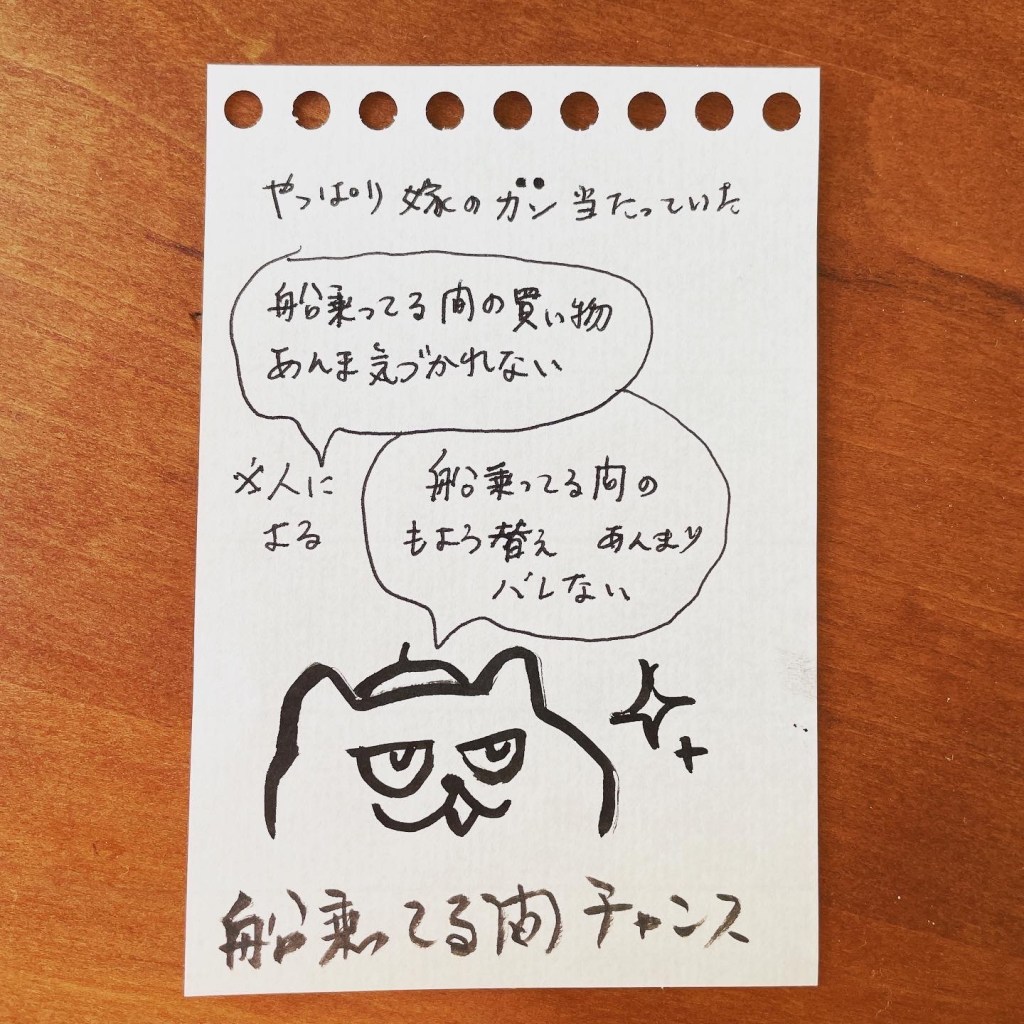 やっぱり嫁のガン当たっていた
船乗ってる間の買い物
あんま気づかれない
※人に
よる
船乗ってる間の
もよう替え あんまり
バレない
船乗ってる間チャンス